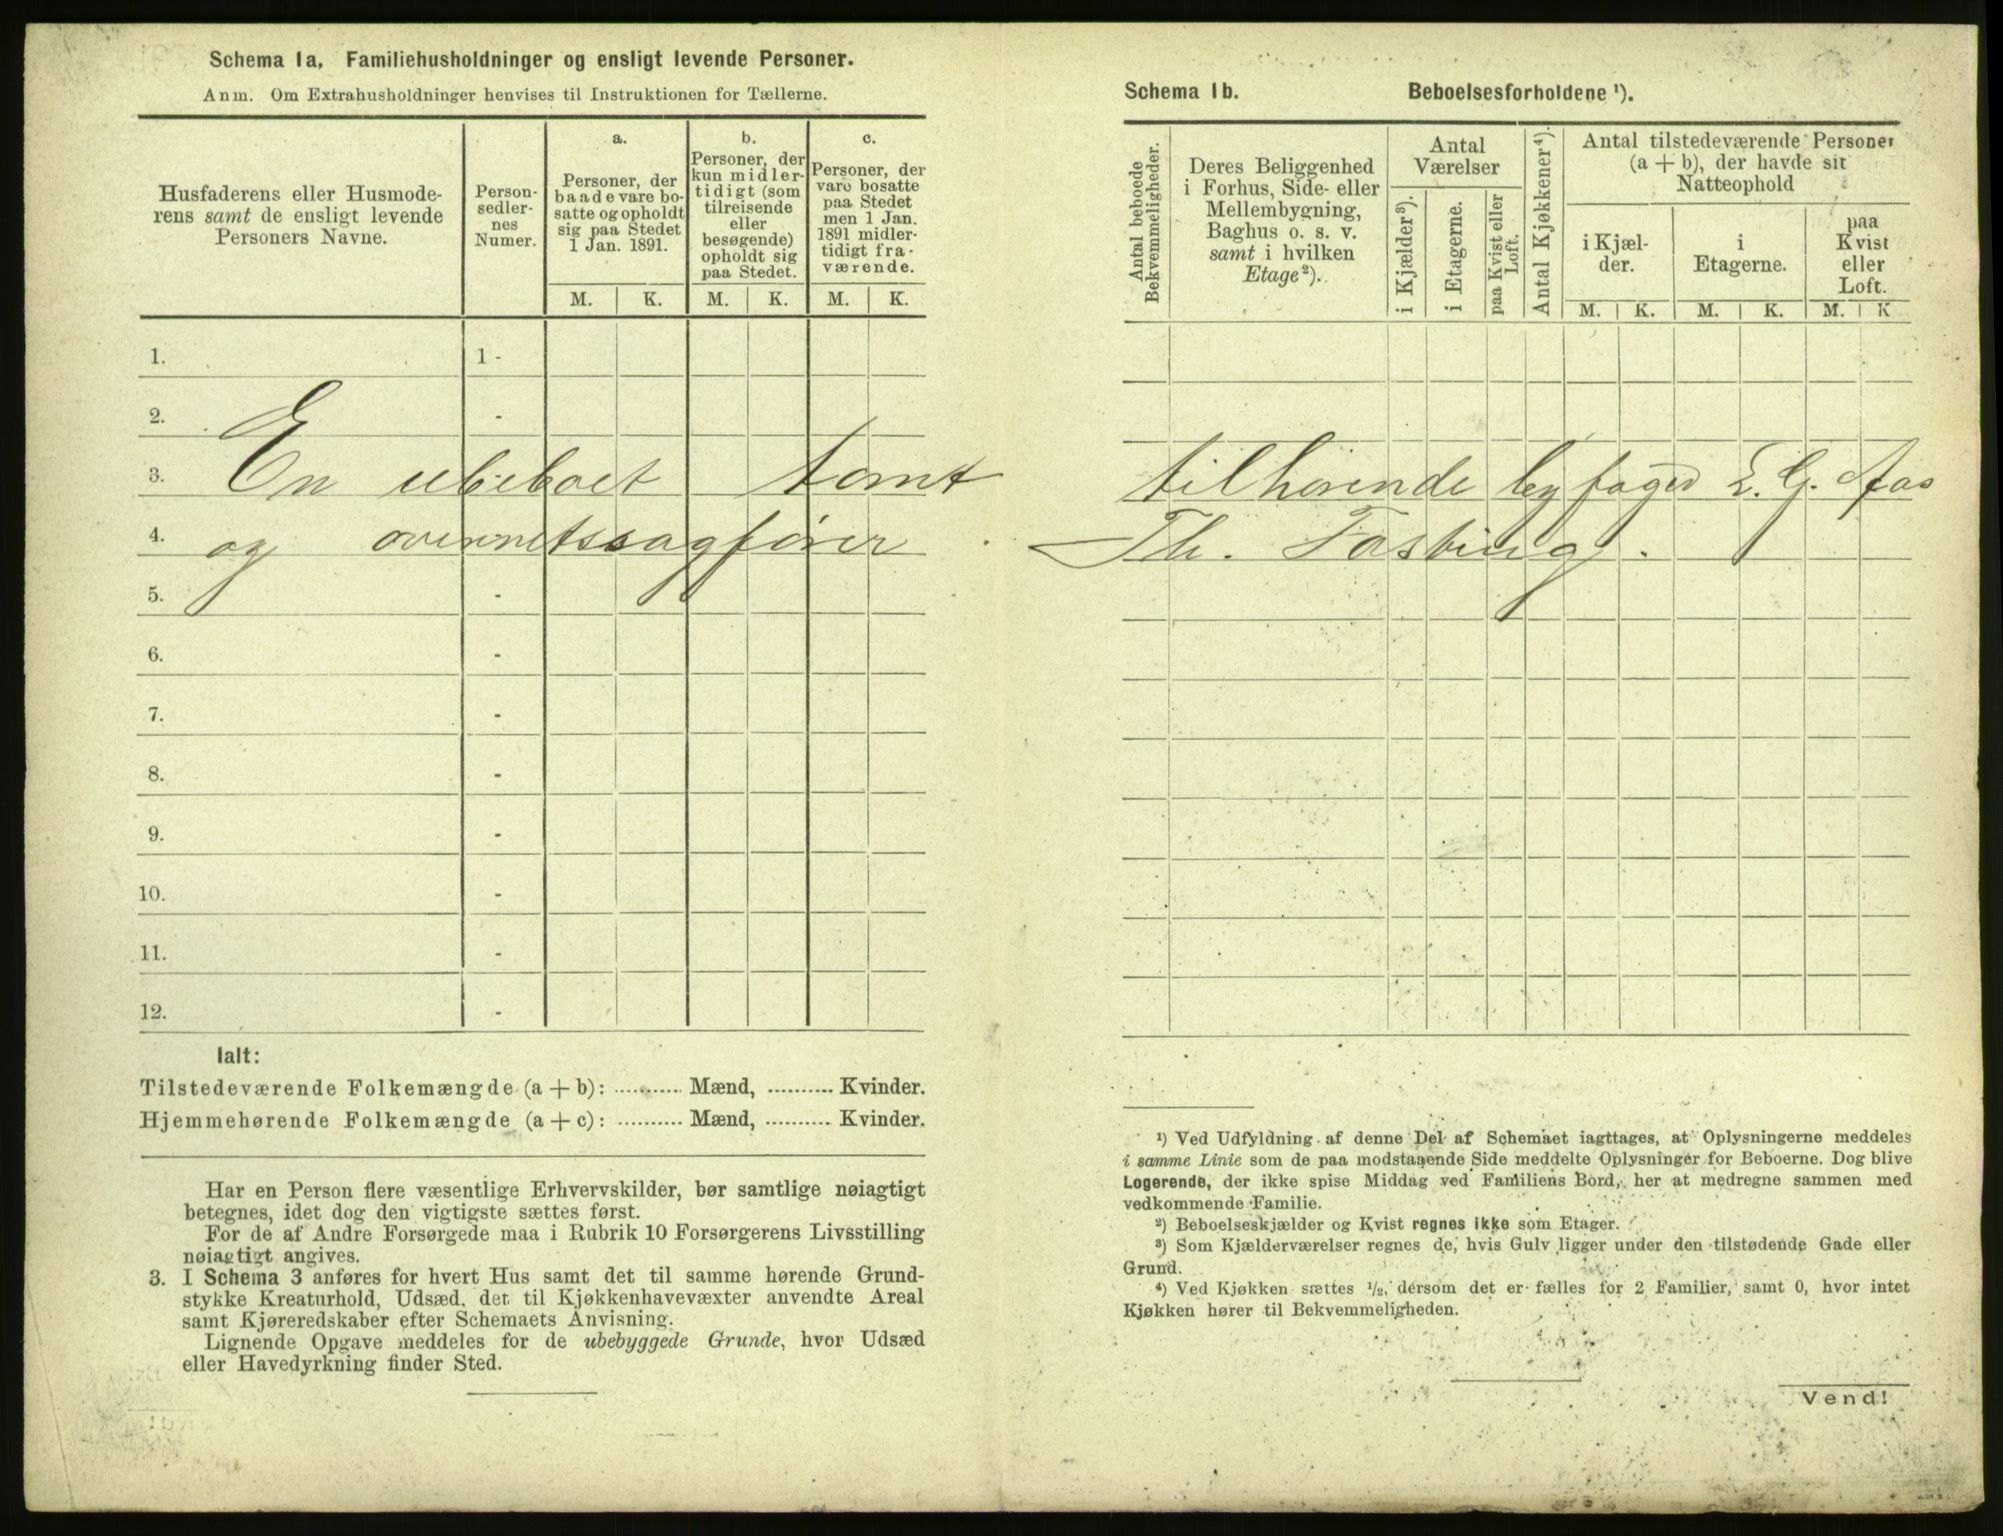 Schema 1a. Familiehusholdninger og ensligt levende Personer.
Anm. Om Extrahusholdninger henvises til Instruktionen for Tællerne.
Husfaderens eller Husmode-
rens samt de ensligt levende
Personers Navne.
Person-
sedler-
nes
Numer.
a.
Personer, der
baade vare bo-
satte og opholdt
sig paa Stedet
1 Jan. 1891.
b.
Personer, der
kun midler-
tidigt (som
tilreisende
eller
besøgende)
opholdt sig
paa Stedet.
c.
Personer, der
vare bosatte
paa Stedet
men 1 Jan.
1891 midler-
tidigt fra-
værende.
M. K. M. K. M. K.
1. 1 -
2. -
3. En ubeboet tomt
4. og overretssagfører
5. -
6. -
7. -
8. -
9. -
10. -
11. -
12. -
Ialt:
Tilstedeværende Folkemængde (a + b): ........... Mænd, .......... Kvinder.
Hjemmehørende Folkemængde (a + c): .......... Mænd, .......... Kvinder.
Har en Person flere væsentlige Erhvervskilder, bør samtlige nøiagtigt
betegnes, idet dog den vigtigste sættes først.
For de af Andre Forsørgede maa i Rubrik 10 Forsørgerens Livsstilling
nøiagtigt angives.
3. I Schema 3 anføres for hvert Hus samt det til samme hørende Grund-
stykke Kreaturhold, Udsæd, det til Kjøkkenhavevæxter anvendte Areal
samt Kjøreredskaber efter Schemaets Anvisning.
Lignende Opgave meddeles for de ubebyggede Grunde, hvor Udsæd
eller Havedyrkning finder Sted.
Schema 1b. Beboelsesforholdene ¹).
Antal beboede
Bekvemmeligheder.
Deres Beliggenhed
i Forhus, Side- eller
Mellembygning,
Baghus o. s. v.
samt i hvilken
Etage²).
Antal
Værelser
i Kjælder³).
i Etagerne.
paa Kvist eller
Loft.
Antal Kjøkkener⁴).
Antal tilstedeværende Personer
(a + b), der havde sit
Natteophold
i Kjæl-
der.
i
Etagerne.
paa
Kvist
eller
Loft.
M. K. M. K. M. K
tilhørende byfoged E. G. Aas
Th. Fasting.
¹) Ved Udfyldning af denne Del af Schemaet iagttages, at Oplysningerne meddeles
i samme Linie som de paa modstaaende Side meddelte Oplysninger for Beboerne. Dog blive
Logerende, der ikke spise Middag ved Familiens Bord, her at medregne sammen med
vedkommende Familie.
²) Beboelseskjælder og Kvist regnes ikke som Etager.
³) Som Kjælderværelser regnes de, hvis Gulv ligger under den tilstødende Gade eller
Grund.
⁴) Ved Kjøkken sættes ½, dersom det er fælles for 2 Familier, samt 0, hvor intet
Kjøkken hører til Bekvemmeligheden.
Vend!